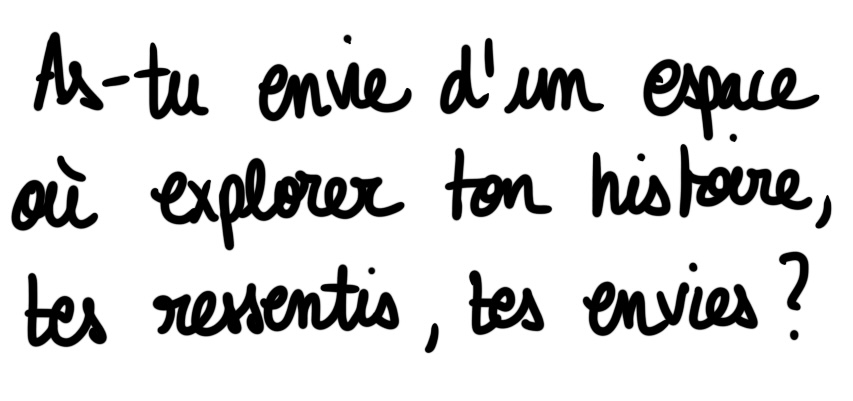 As-tu envie d'un espace
où explorer ton histoire,
tes ressentis, tes envies ?